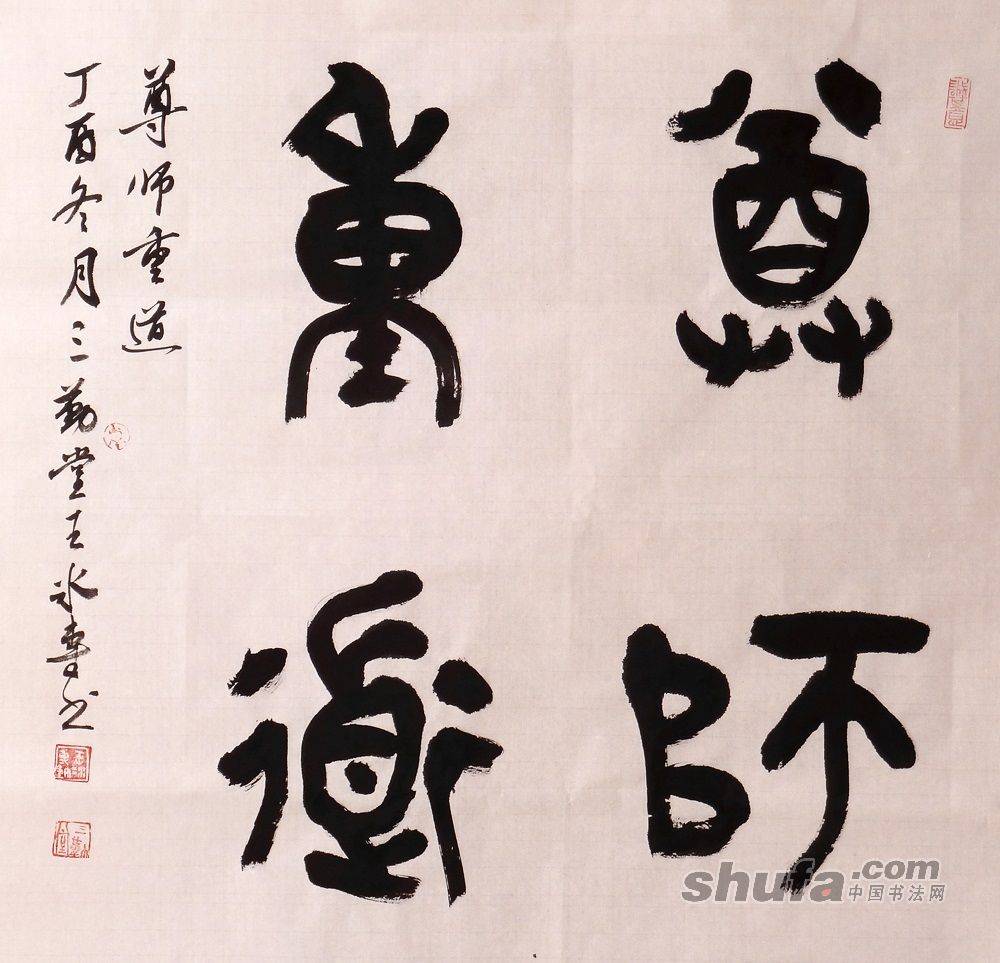 尊師
重道
尊师重道
丁酉冬月三勤堂王冰
书
shufa.com
中国书法网